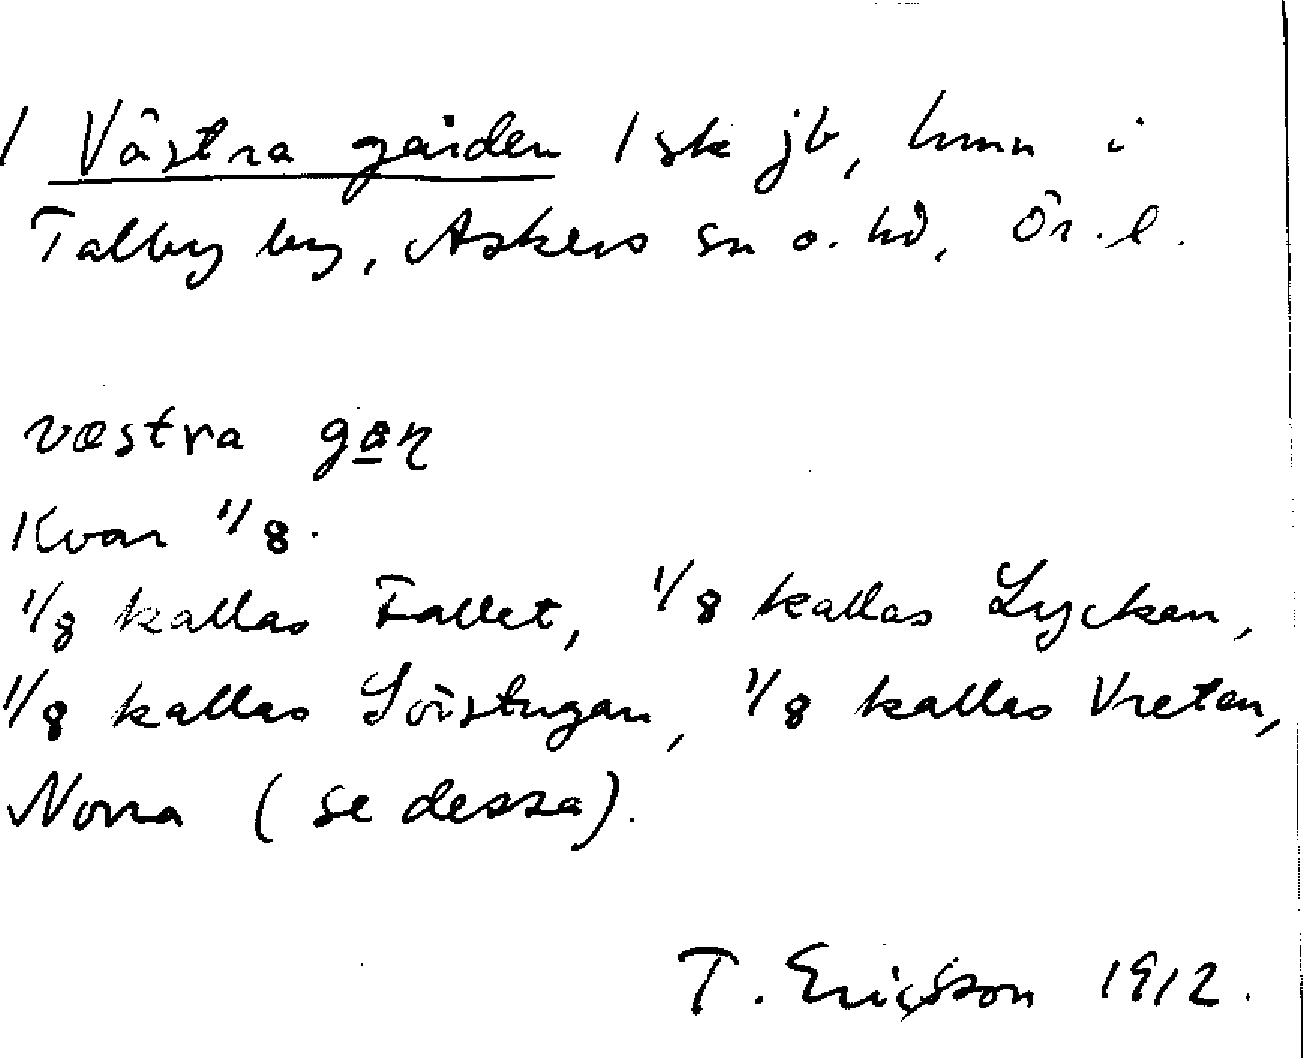 1 Västra gården 1 sk jb, hmn i
Talby by, Askers sn o. hd, Ör. l.
væstra gan
Kvar 1/8.
1/8 kallas Fallet, 1/8 kallas Lyckan,
1/8 kallas Sörstugan, 1/8 kallas Vretan,
Norra (se dessa).
T. Ericsson 1912.